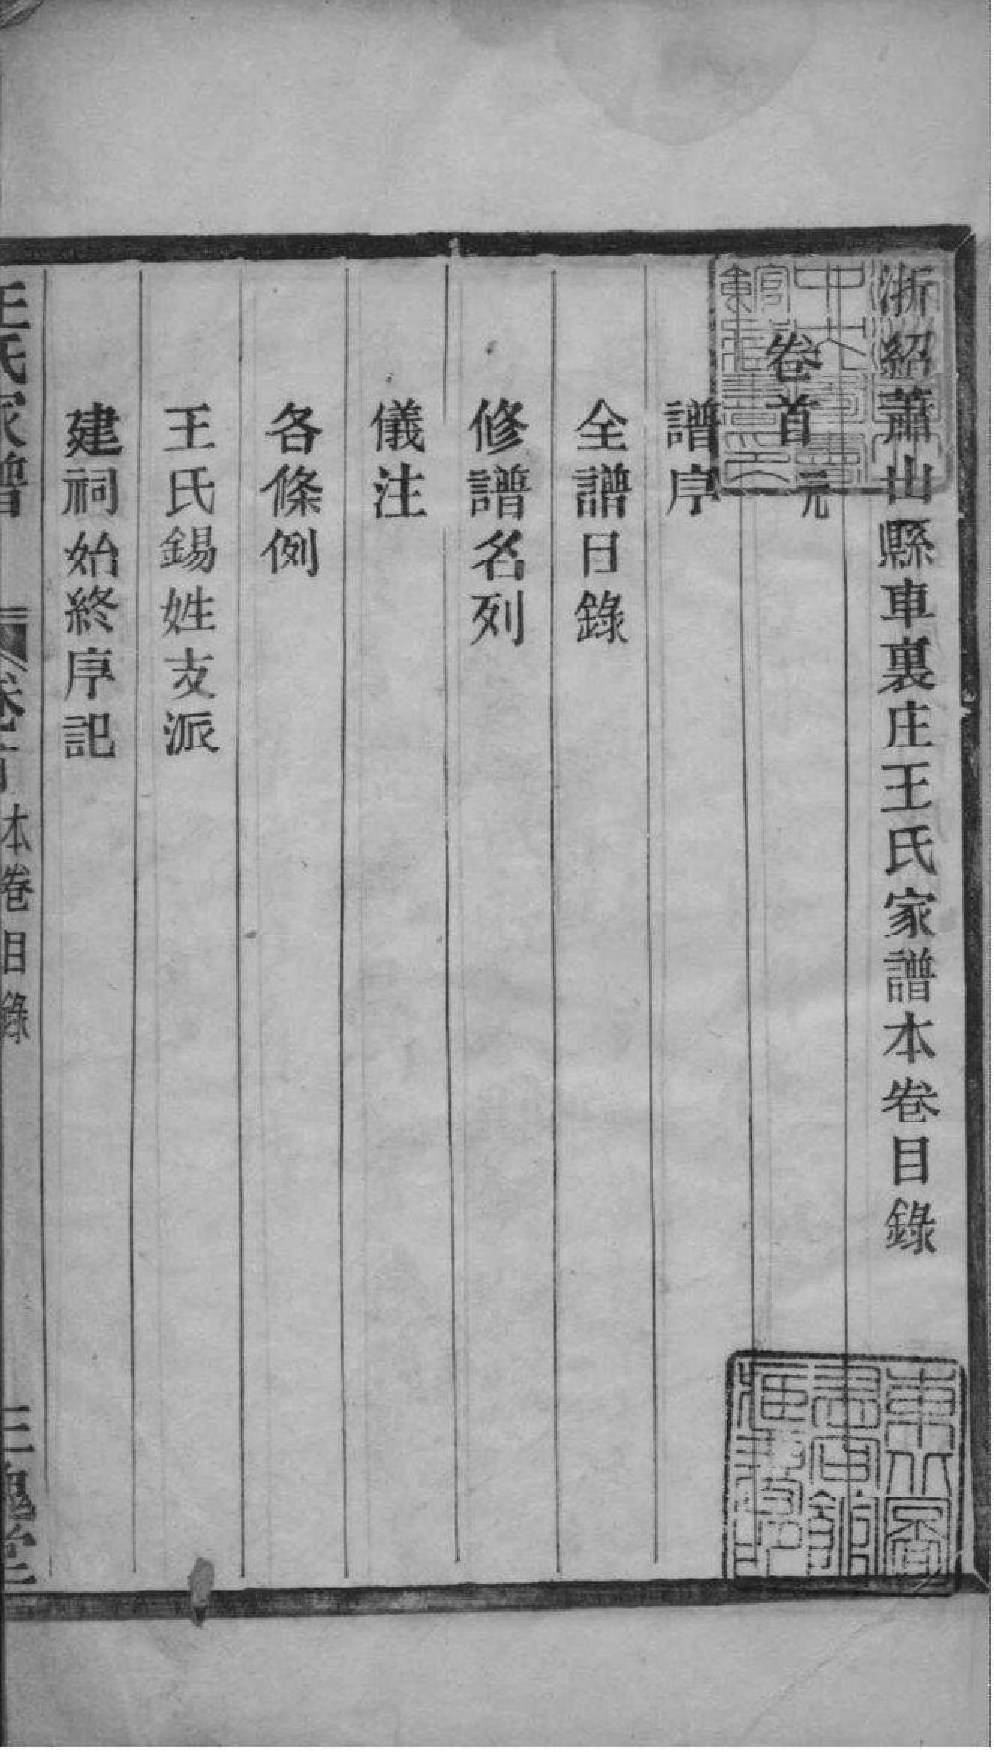 浙紹蕭山縣車裏庄王氏家譜本卷目錄
卷首 元
譜序
全譜目錄
修譜名列
儀注
各條例
王氏錫姓支派
建祠始終序記
王氏家譜 卷首 本卷目錄 三槐堂